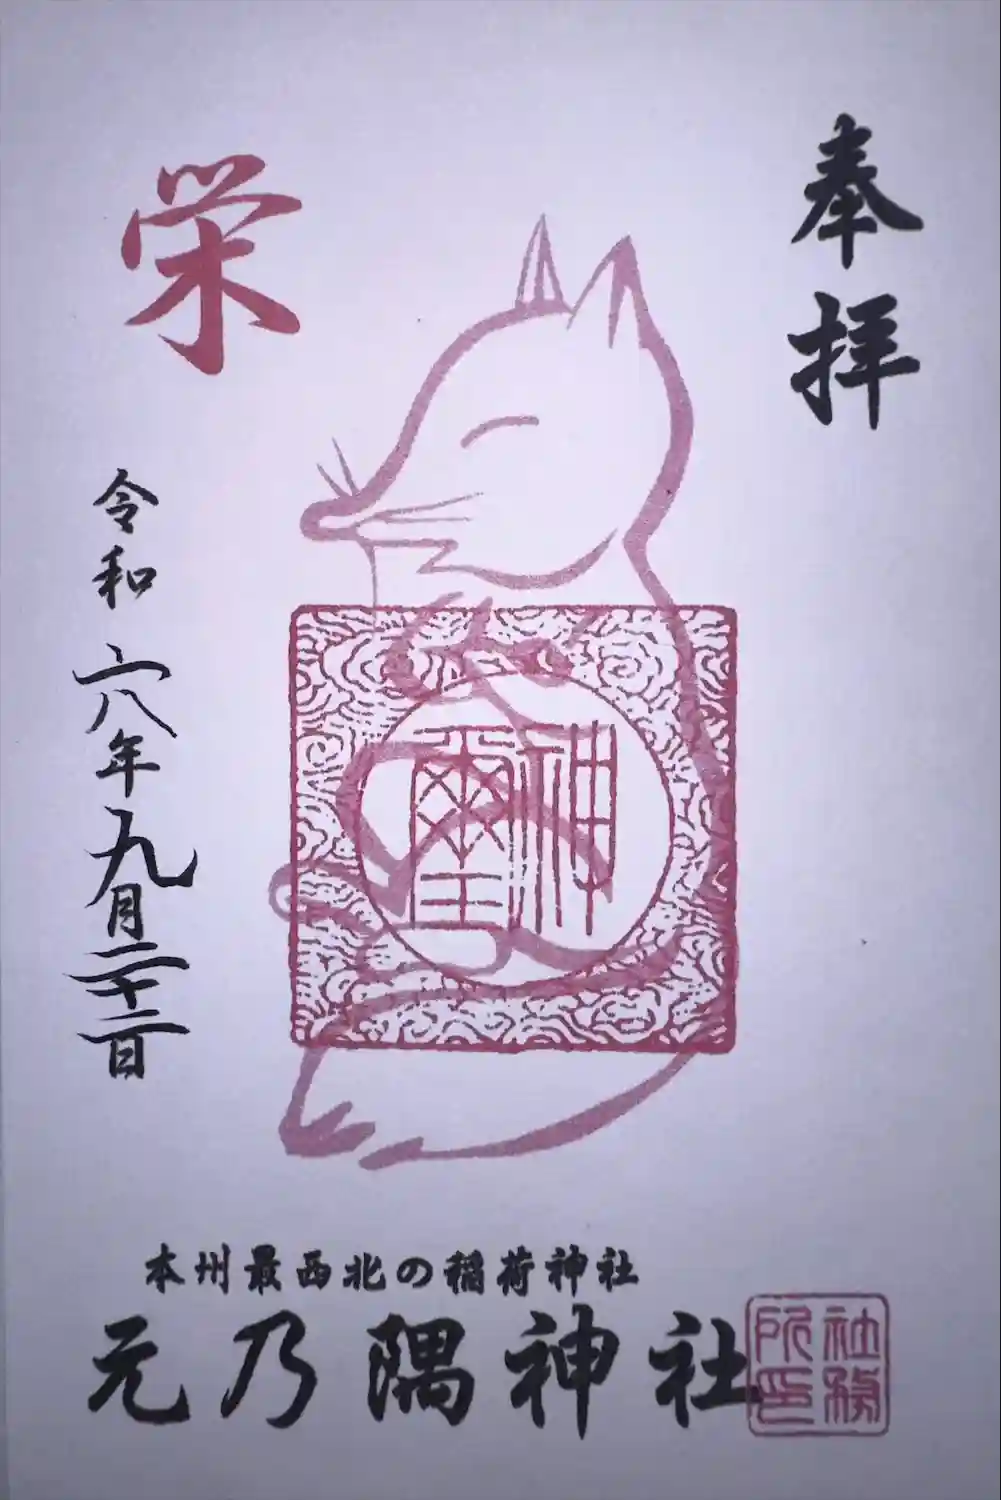 奉拝
栄
神
璽
令和六年九月二十二日
本州最西北の稲荷神社
元乃隅神社
社務
所印